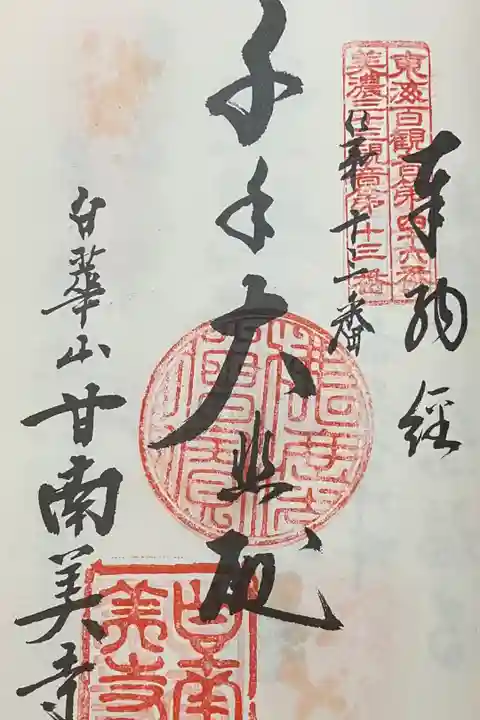 奉納経
東海百観音第四十六番
美濃三十三観音第十三番
千手大悲殿
白華山甘南美寺
甘南美寺